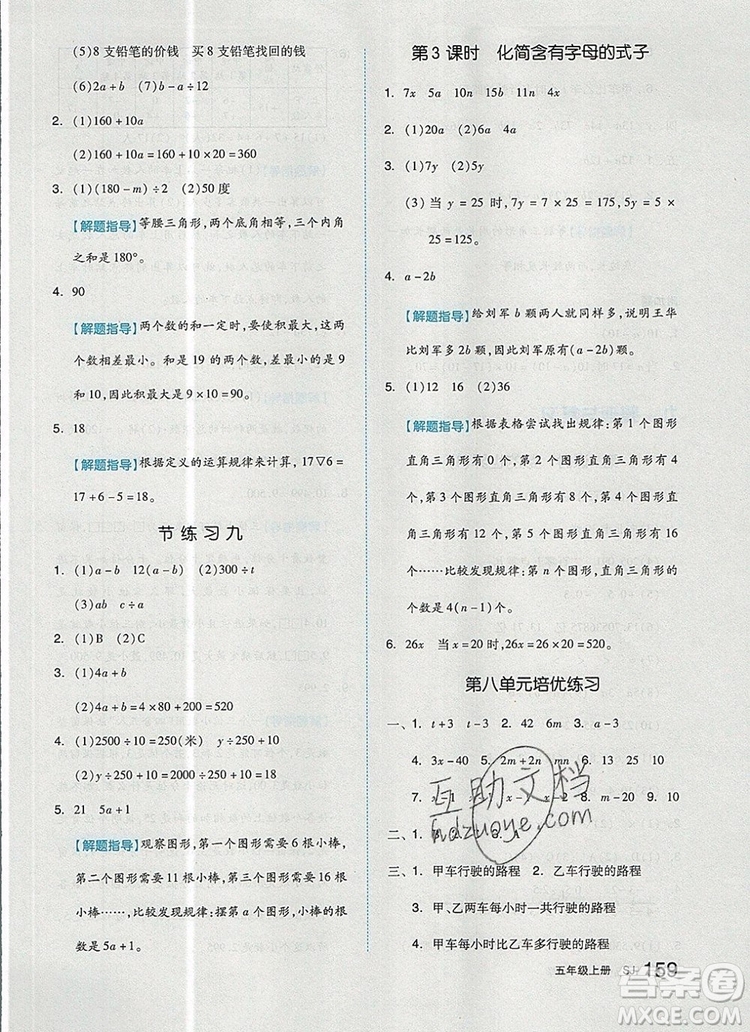 (5)8支铅笔的价钱　买8支铅笔找回的钱
(6)2a+b　(7)b-a÷12
2. (1)160+10a
(2)160+10a=160+10×20=360
3. (1)(180-m)÷2　(2)50度
【解题指导】等腰三角形,两个底角相等,三个内角
之和是180°。
4. 90
【解题指导】两个数的和一定时,要使积最大,这两
个数相差最小。和是19的两个数相差最小的是9
和10,因此积最大是9×10=90。
5. 18
【解题指导】根据定义的运算规律来计算,17▽6=
17+6-5=18。
节练习九
1. (1)a-b　12(a-b)　(2)300÷t
(3)ab　c÷a
2. (1)B　(2)C
3. (1)4a+b
(2)4a+b=4×80+200=520
4. (1)2500÷10=250(米)　y÷250+10
(2)y÷250+10=2000÷250+10=18
5. 21　5a+1
【解题指导】观察图形,第一个图形需要6根小棒,
第二个图形需要11根小棒,第三个图形需要16根
小棒……比较发现规律:摆第a个图形,小棒的根
数是5a+1。
第3课时　化简含有字母的式子
1. 7x　5a　10n　15b　11n　4x
2. (1)20a　(2)6a　4a
3. (1)7y　(2)5y
(3)当y=25时,7y=7×25=175,5y=5×
25=125。
4. a-2b
【解题指导】给刘军b颗两人就同样多,说明王华
比刘军多2b颗,所以刘军原来有(a-2b)颗。
5. (1)12　16　(2)36
【解题指导】根据表格尝试找出规律:第1个图形
直角三角形的个数是0,第2个图形直角三角形的个
数是4,第3个图形直角三角形的个数是8,第4个图形直角
三角形的个数是12,第5个图形直角三角形的个数是
16……比较发现规律:第n个图形,直角三角形的
个数是4(n-1)。
6. 26x　当x=20时,26x=26×20=520。
第八单元培优练习
一、1. t+3　t-3　2. 42　6m　3. a-3
4. 3x-40　5. 2m+2n　mn　6. 27
8. m-20　9. 10
三、1. 甲车行驶的路程　2. 乙车行驶的路程
3. 甲、乙两车每小时一共行驶的路程
4. 甲车每小时比乙车多行驶的路程
五年级上册　SJ　159
互助文档
hdzuoye.com
答案圈
MXQE.COM